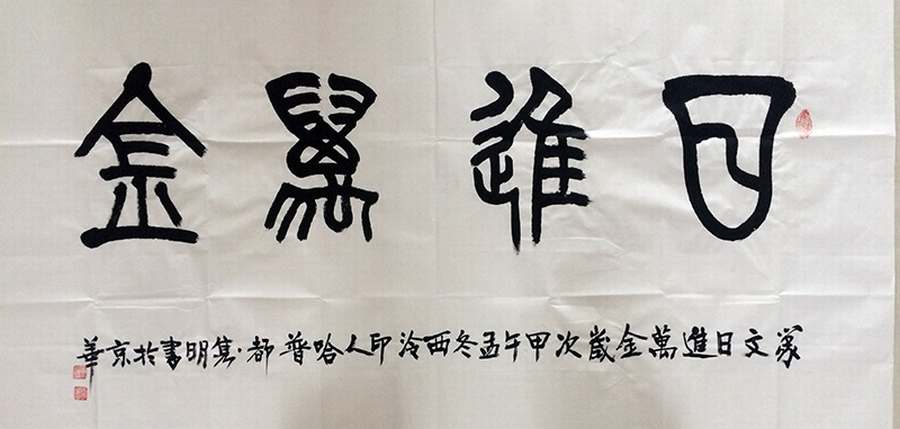 日進萬金
篆文日進萬金歲次甲午孟冬西泠印人哈普都·隽明書於京華